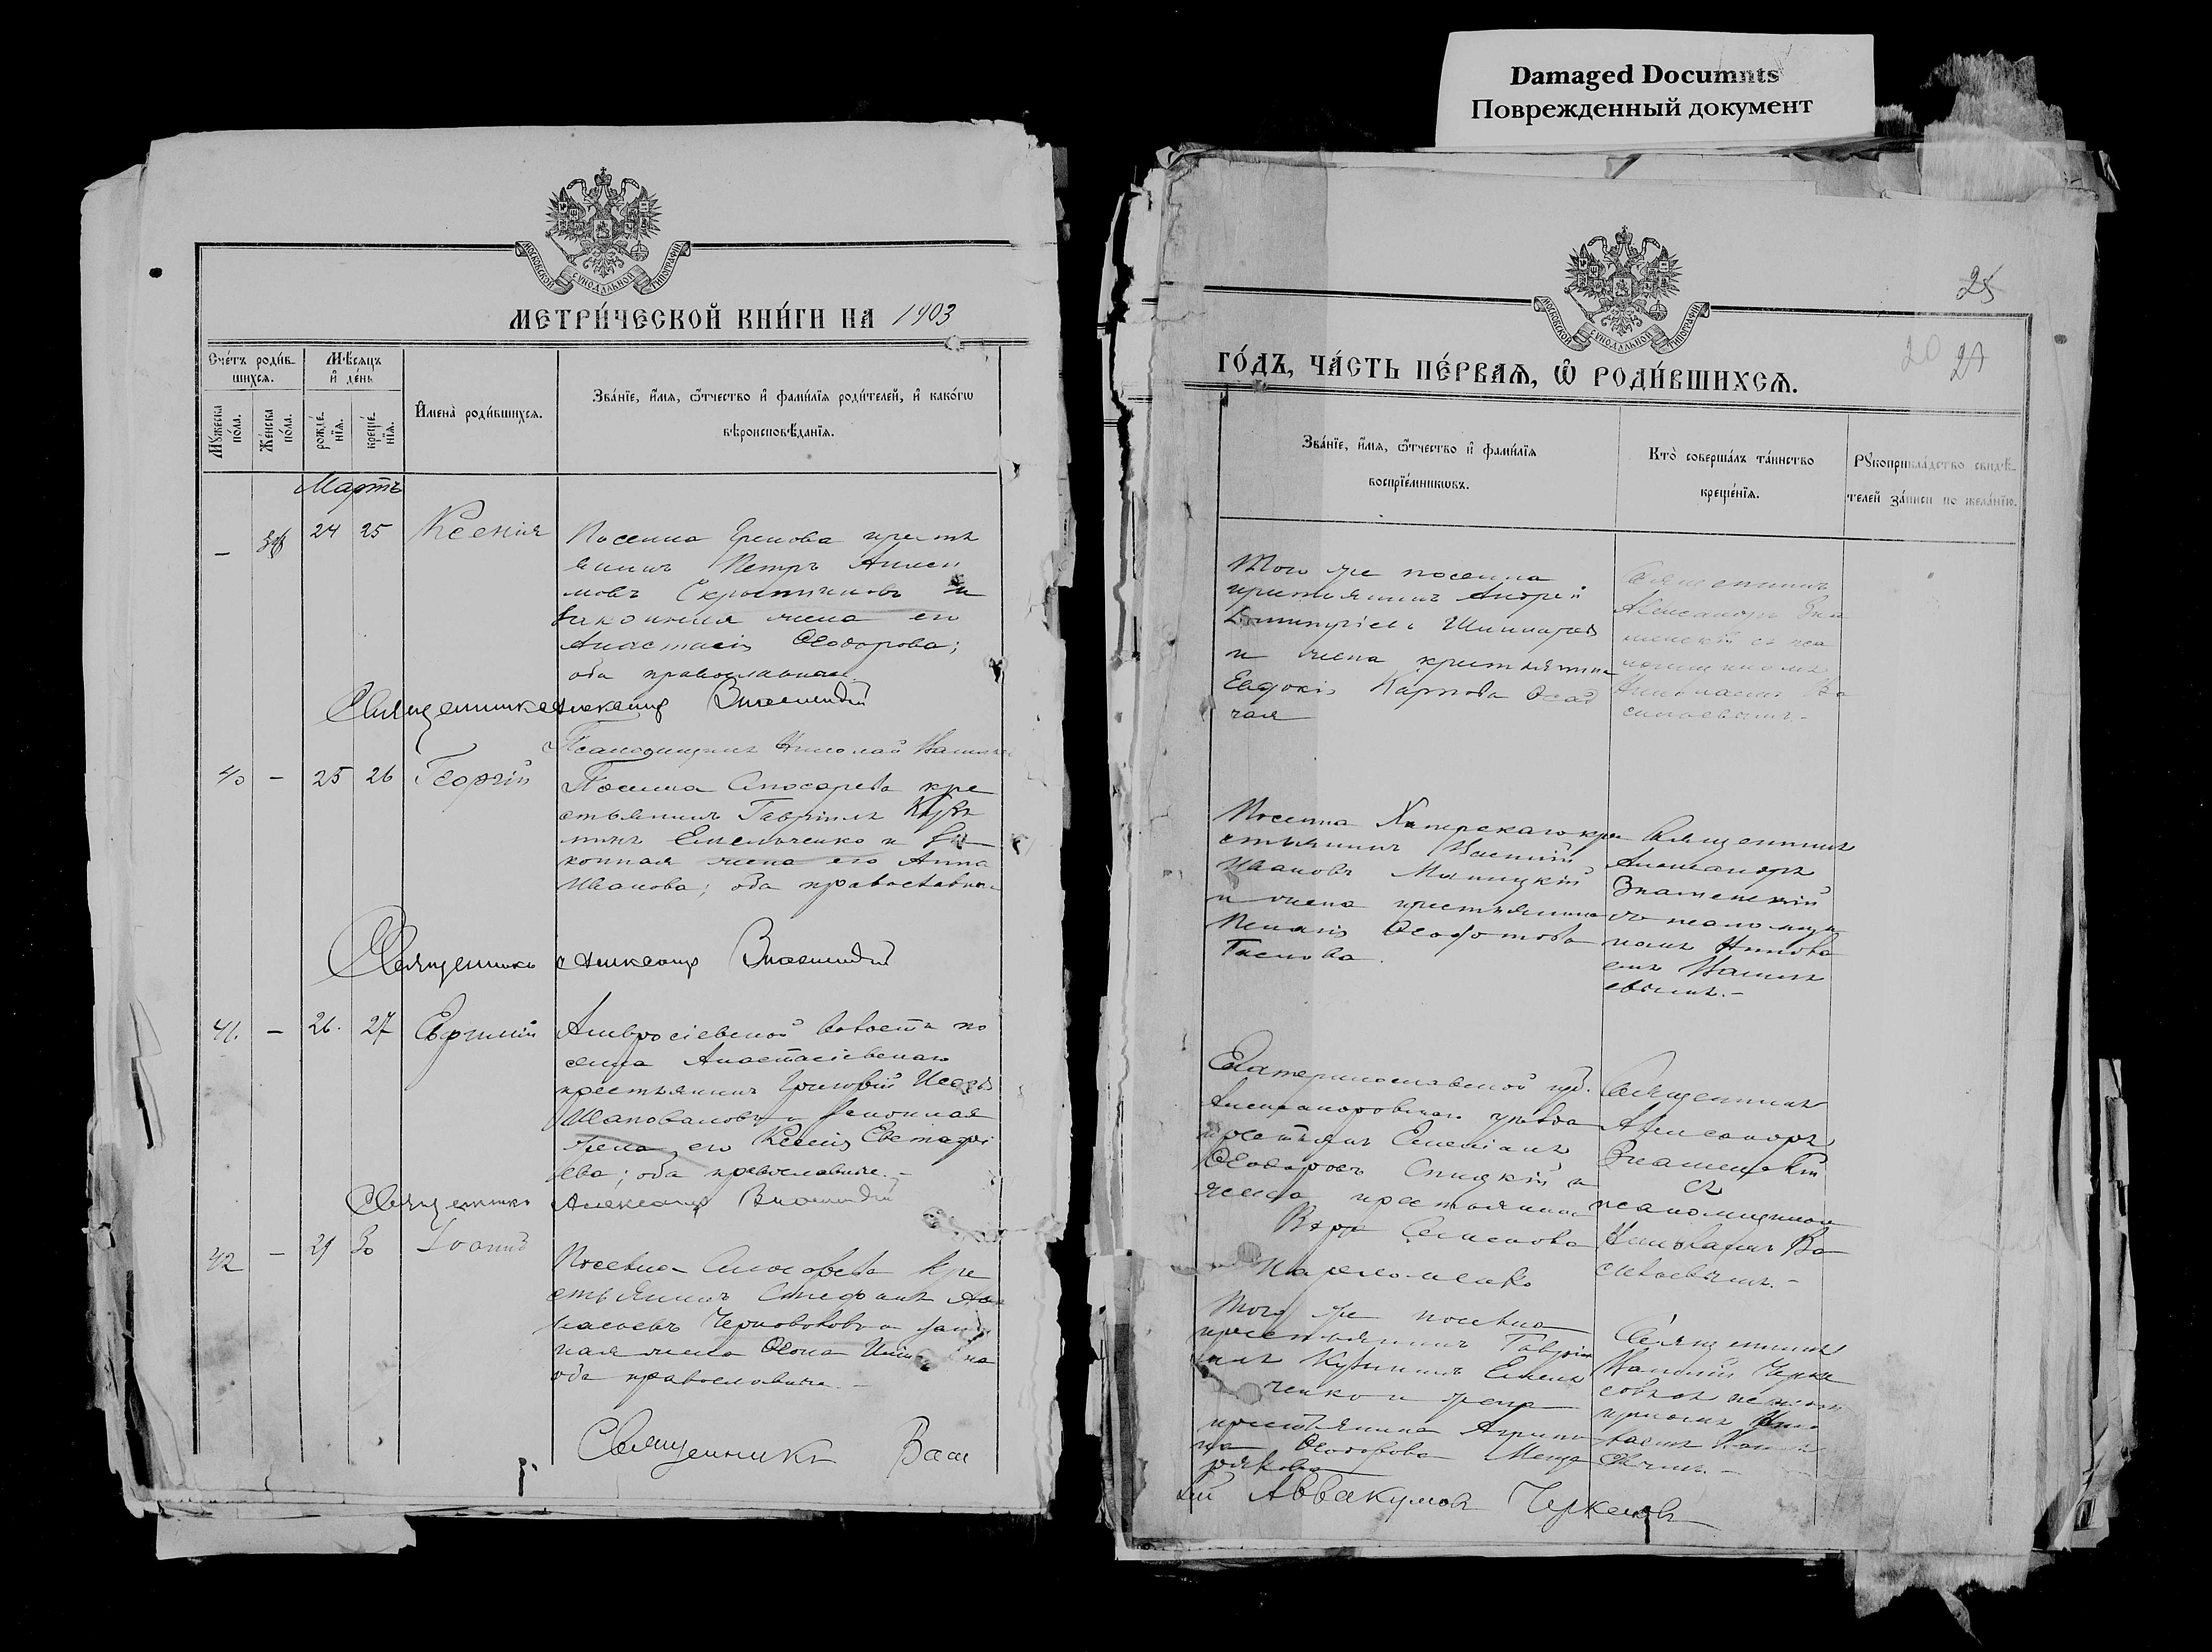 Damaged Documnts
Поврежденный документ
МОСКОВСКОЙ СѴНОДАЛЬНОЙ ТИПОГРАФІИ
МЕТРИ́ЧЕСКОЙ КНИ́ГИ НА 1903
Сче́тъ роди́в-
шихся.
Мѣ́сяцъ
и҆ де́нь
Мꙋжеска по́ла.
Же́нска по́ла.
рожде́нїя.
креще́нїя.
И҆мена̀ роди́вшихся.
Зва́нїе, и҆́мя, ѻ҆́тчество и҆ фами́лїя роди́телей, и҆ како́гѡ
вѣроисповѣ́данїя.
Мартъ
— 24 25 Ксенія
крестья
нинъ Петръ
законная жена его
Анастасія Ѳеодорова;
оба православные
Священникъ Александръ Знаменскій
Псаломщикъ Николай
40 — 25 26 Георгій
Поселка Слюсарева кре
стьянинъ Гавріилъ Кузь
минъ Емельченко и за
конная жена его Анна
Иванова; оба православные
Священникъ Александръ Знаменскій
41. — 26. 27 Евфимій
Амвросіевской волости по
селка Анастасіевскаго
крестьянинъ Григорій
Шаповаловъ и законная
жена его Ксенія Евстафі
ева; оба православные.-
Священникъ Александръ Знаменскій
42 — 29 30 Іоаннъ
Поселка Слюсарева кре
стьянинъ Стефанъ Аѳа
насьевъ Черноволовъ и закон
ная жена
оба православные.-
Священникъ Васи
МОСКОВСКОЙ СѴНОДАЛЬНОЙ ТИПОГРАФІИ
25
20 27
ГО́ДЪ, ЧА́СТЬ ПЕ́РВАЯ, Ѡ҆ РОДИ́ВШИХСЯ.
Зва́нїе, и҆́мя, ѻ҆́тчество и҆ фами́лїя
воспрїе́мникѡвъ.
Кто̀ соверша́лъ та́инство
креще́нїя.
Рꙋкоприкла́дство свидѣ́-
телей за́писи по жела́нїю.
Того же поселка
крестьянинъ Андрей
Димитріевъ
и жена крестьянина
Евдокія Карпова Осад
чая
Священникъ
Александръ Зна
менскій съ пса
ломщикомъ
Николаемъ Ва
сильевымъ.-
Поселка Хоперскаго кре
стьянинъ Василій
Ивановъ
и жена крестьянина
Пелагія Ѳеофотова
Священникъ
Александръ
Знаменскій
съ псаломщи
комъ Никола
емъ Василь
евымъ.-
Екатеринославской губ.
Александровскаго уѣзда
крестьянинъ Емеліанъ
Ѳеодоровъ и
жена крестьянина
Вѣра Семенова
Пархоменко
Священникъ
Александръ
Знаменскій
съ
псаломщикомъ
Николаемъ Ва
сильевымъ.-
Того же поселка
крестьянинъ Гаврі
илъ Кузьминъ Емель
ченко и жена
крестьянина Агрипи
на Ѳеодорова
Священникъ
Василій Черке
совъ съ псалом
щикомъ Нико
лаемъ Василь
евымъ.-
лій Аввакумовъ Черкесовъ